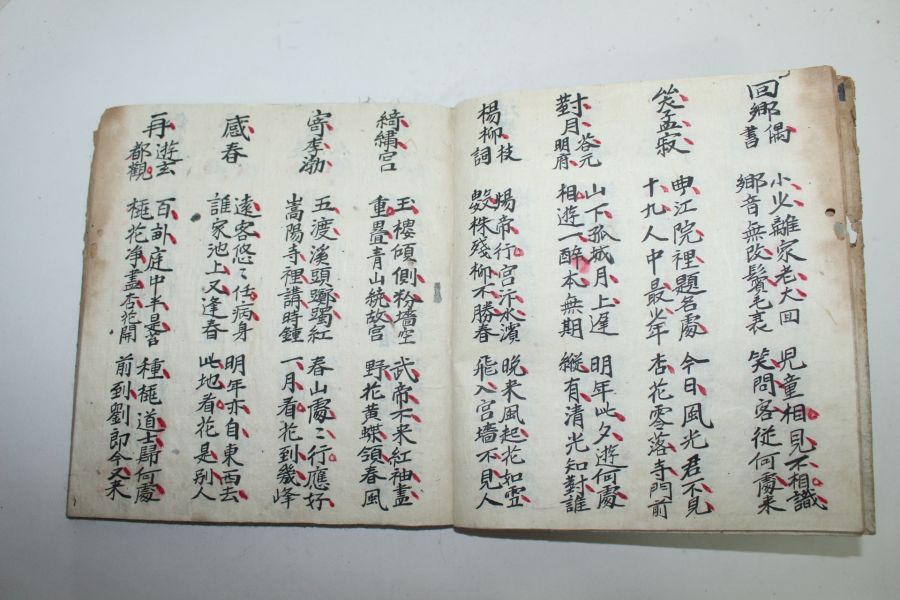 回鄉偶書
小少離家老大回
鄉音無改鬢毛衰
児童相見不相識
笑問客従何處来
笑孟寂
曲江院裡題名處
十九人中最少年
今日風光君不見
杏花零落寺門前
對月答元明府
山下孤城月上遲
相遊一醉本無期
明年此夕遊何處
縱有清光知對誰
楊柳枝詞
煬帝行宮汴水濱
數株殘柳不勝春
晚来風起花如雪
飛入宮墻不見人
綺繡宮
玉樓傾側粉墻空
重疊青山繞故宮
武帝不来紅袖盡
野花黃蝶領春風
寄李渤
五渡溪頭躑躅紅
嵩陽寺裡講時鐘
春山處〻行應好
一月看花到幾峰
感春
遠客悠〻任病身
誰家池上又逢春
明年亦自東西去
此地看花是別人
再遊玄都觀
百訃庭中半是苔
桃花淨盡杏花開
種桃道士歸何處
前到劉即今又来